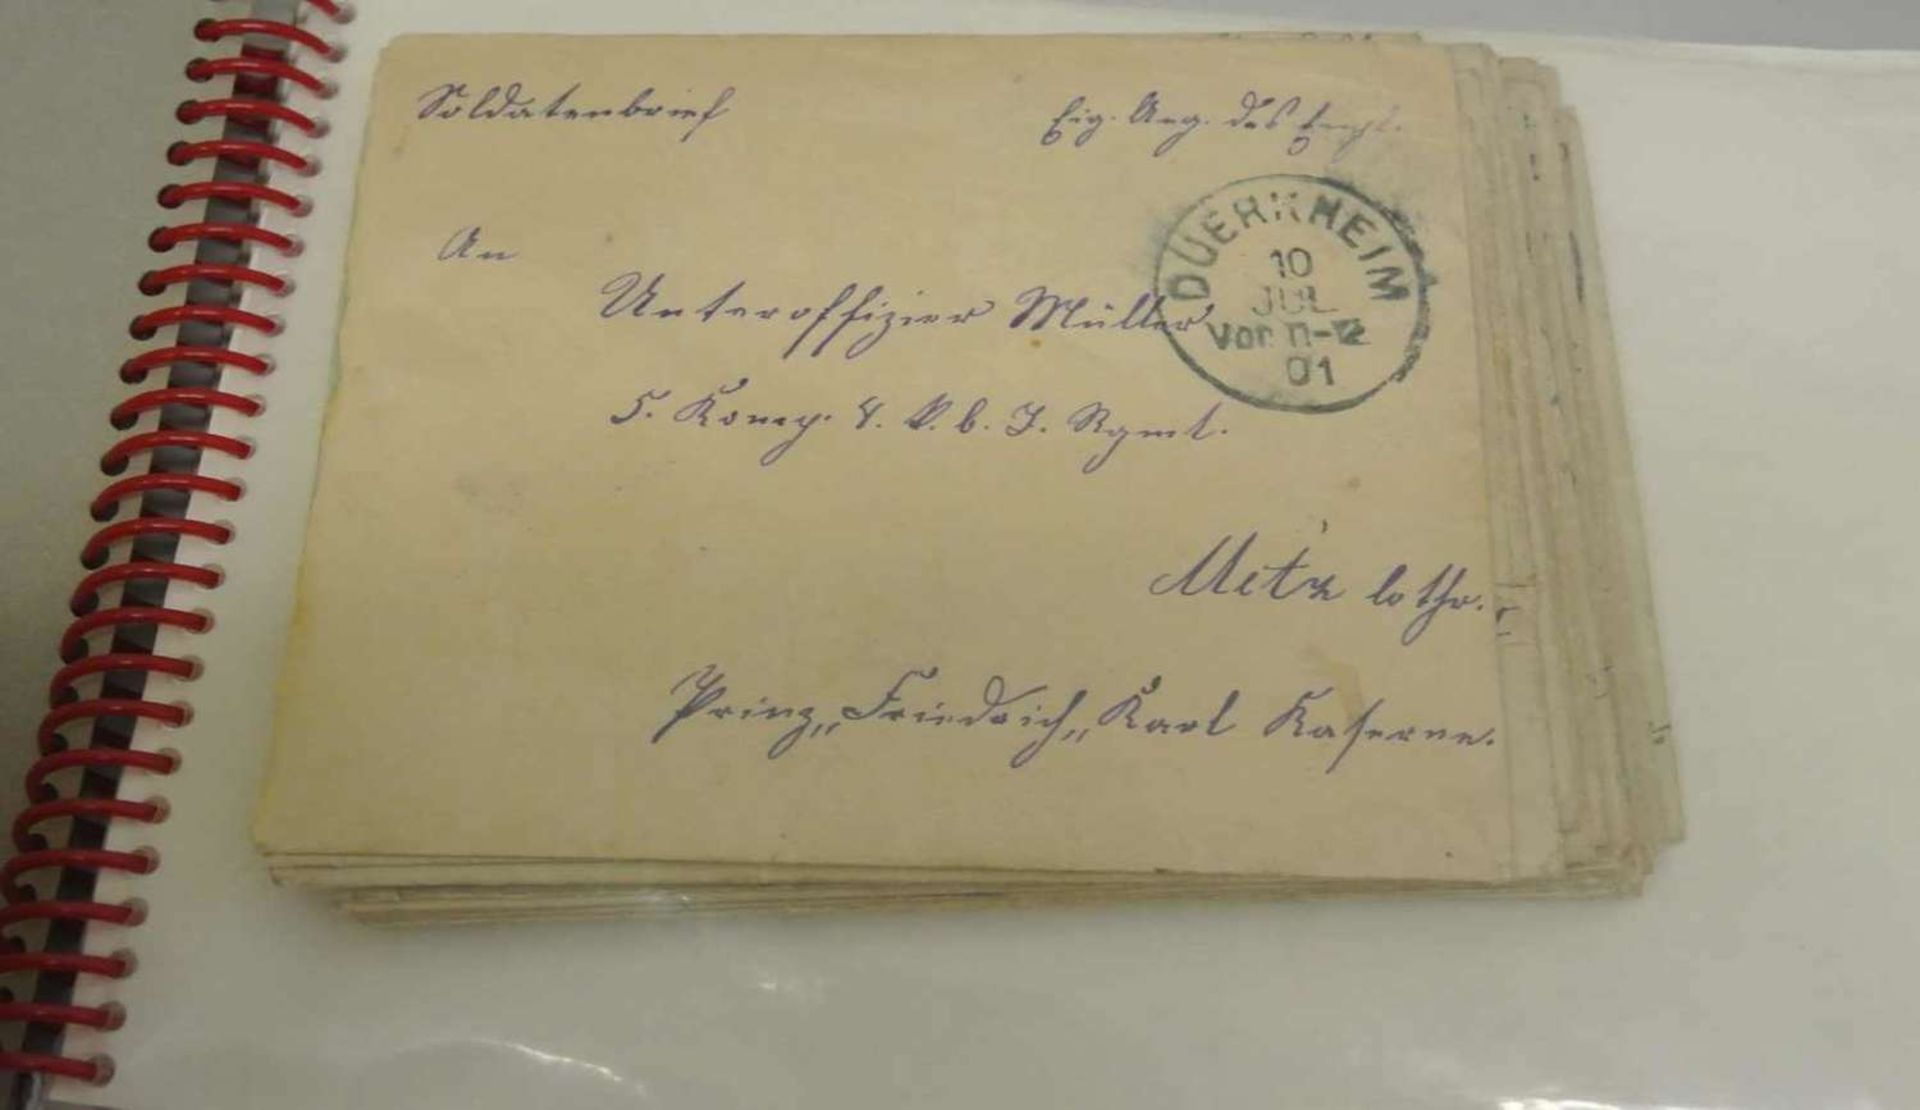 Soldatenbrief
Eig. Ang. des Empf.
An
Unteroffizier Müller
5. Komp. 8. K. b. I. Rgmt.
Metz lothr.
Prinz „Friedrich„ Karl Kaserne.
DUERKHEIM
10
JUL
Vor 11-12
01